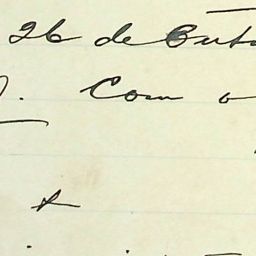 26 de Outu
. Com o